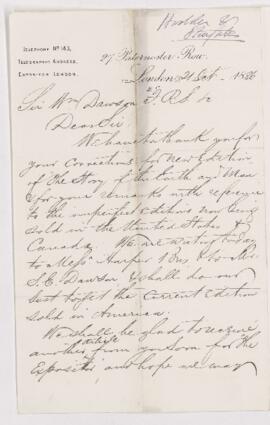 Hodder &
Stoughton
TELEPHONY No 183,
TELEGRAPHIC ADDRESS,
EXPOSITOR LONDON.
27 Paternoster Row.
London 21 Oct 1886
Sir Wm Dawson F.R.S &c
Dear Sir,
We have to thank you for
your corrections for New Edition
of the Story of the Earth and Man
& for your remarks with reference
to the imperfect editions now being
sold in the United States &
Canada. We are writing today
to Messrs Harper & Bros & to Mr
S.E. Dawson & shall do our
best to get the current edition
sold in America.
We shall be glad to receive
another article from you soon for the
Expositor and hope we may